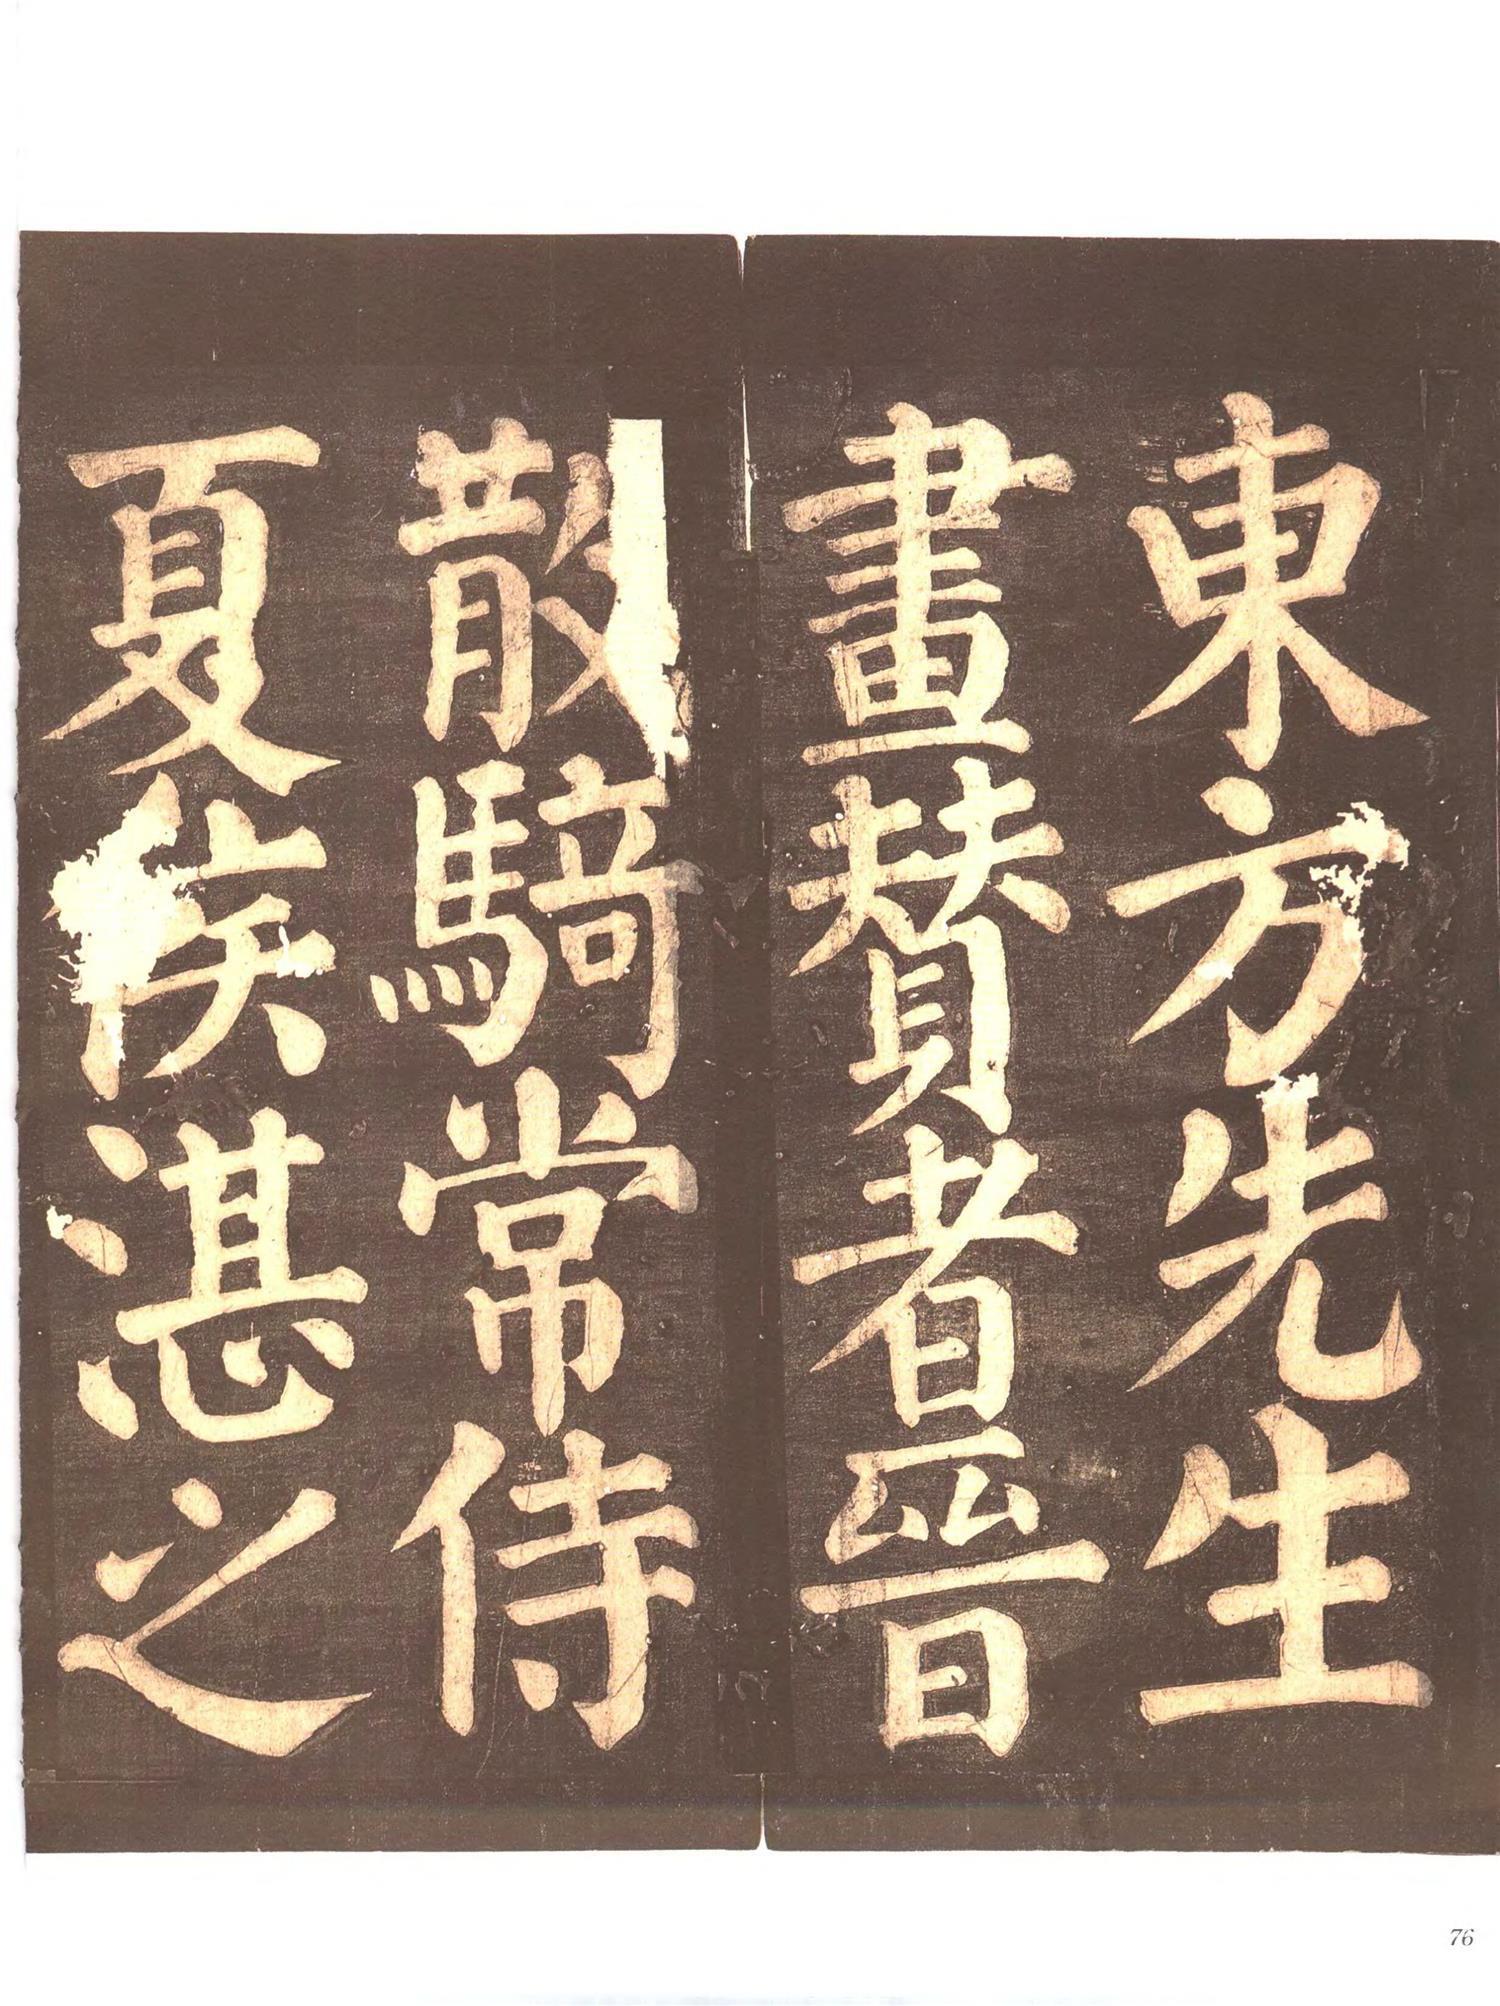 東方先生
畫贊者晉
散騎常侍
夏侯湛之
76